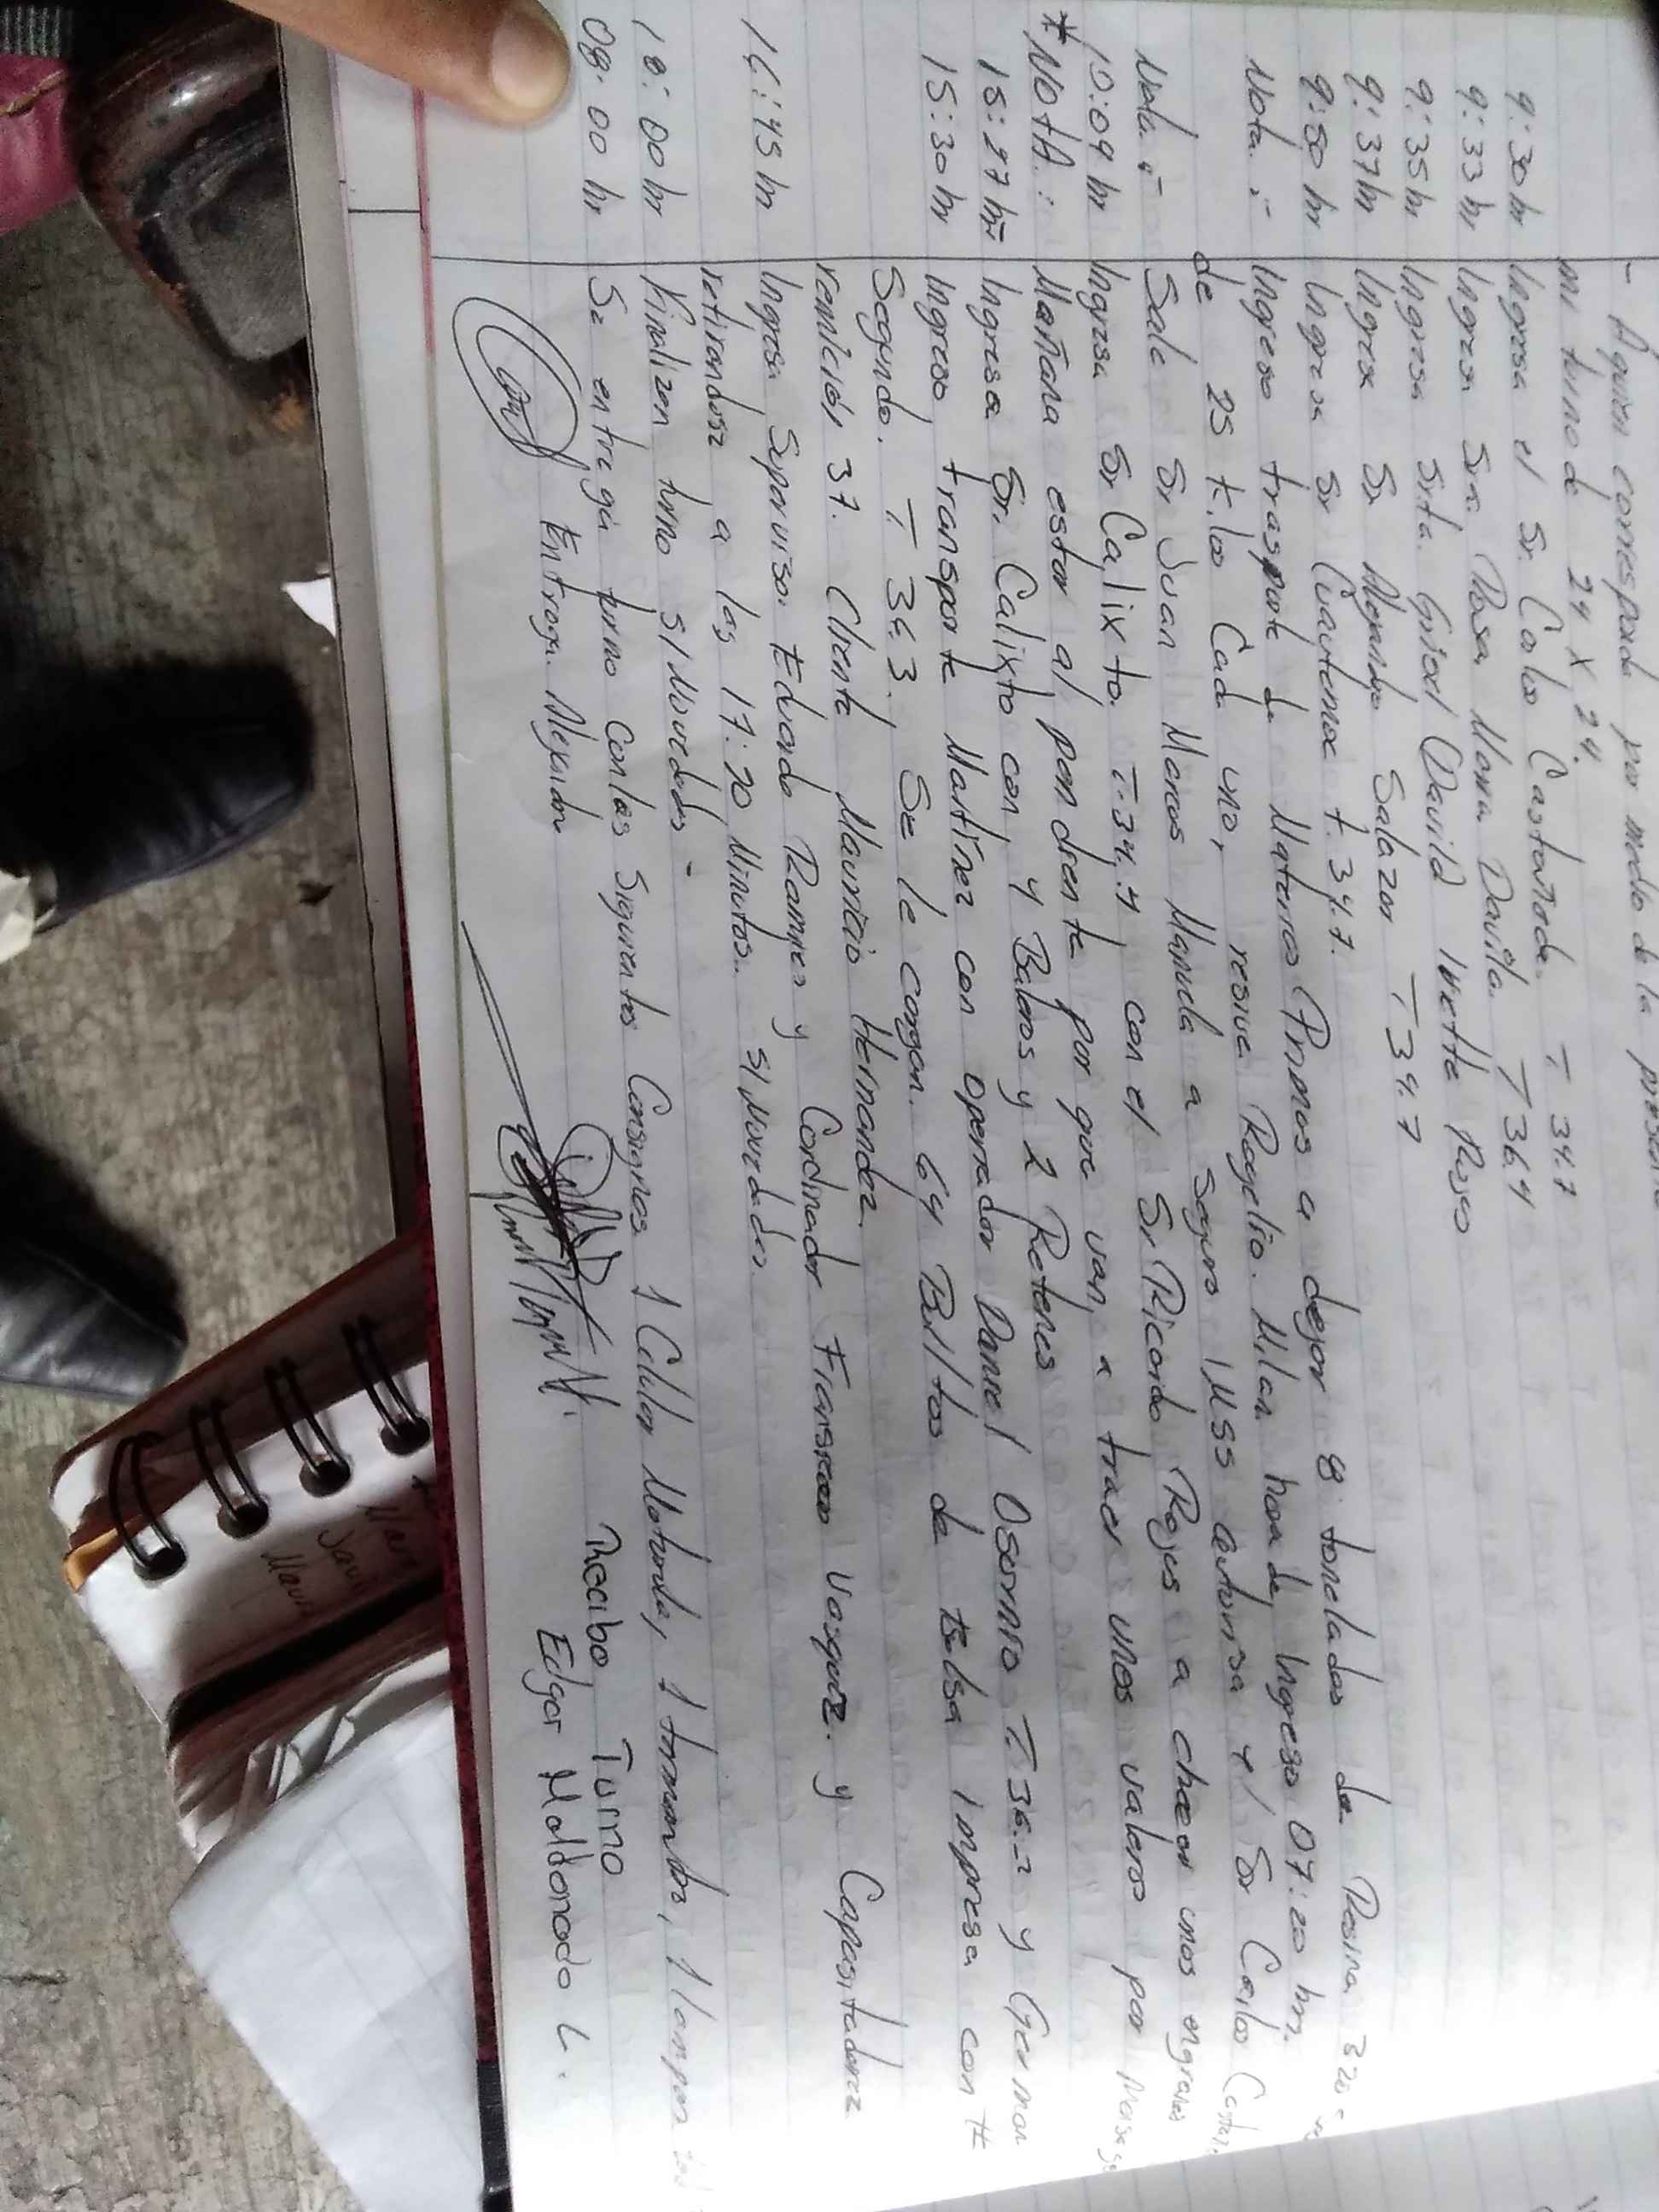 - A quien corresponda por medio de la presente
mi turno de 24 x 24.
9:30 hr Ingresa el Sr. Carlos Castañeda. T- 34.7
9:33 hr Ingresa Sra. Rosa Maria Davila. T 36.4
9:35 hr Ingresa Srta. Grisel David Ivette Rojo
9:37 hr Ingresa Sr Alejandro Salazar T 34.7
9:50 hr Ingresa Sr Cuautemoc t. 34.7.
Nota :- Ingreso trasporte de Materias Primas a dejar 8 toneladas de Resina 320
de 25 kilos Cada uno, resive Rogelio. Milan hora de, Ingreso 07:20 hrs.
Nota :- Sale Sr Juan Marcos Manuela a seguro IMSS autorisa el Sr Carlos
10:09 hr Ingresa Sr Calixto. T-34.4 con el Sr Ricardo Rojas a checar unos engranes
*NOTA.: Mañana estar al pendiente por que van, a traer unos valeros por
15:27 hr Ingresa Sr. Calixto con, 4 Baleros y 2 Retenes
15:30 hr Ingreso transporte Martínez con operador Daniel Osornio T. 36.2 y German
Segundo. T. 36.3. Se le cargan. 64 Bultos de bolsa Impresa con #
remición 37. Cliente Mauricio Hernandez.
16:45 hr Ingresa Supervisor Eduardo Ramires y Cordinador Fransisco Vasquez. y Capasitadores
retirandose a las 17:20 Minutos.. S/Novedades
18:00 hr Finalizan turno S/Novedades -
08:00 hr Se entrega turno Con las Siguientes Consignas 1 Celular Motorola, 1 , 1 lampara
Entrega. Alejandro
Recibo Turno
Edgar Maldonado L.